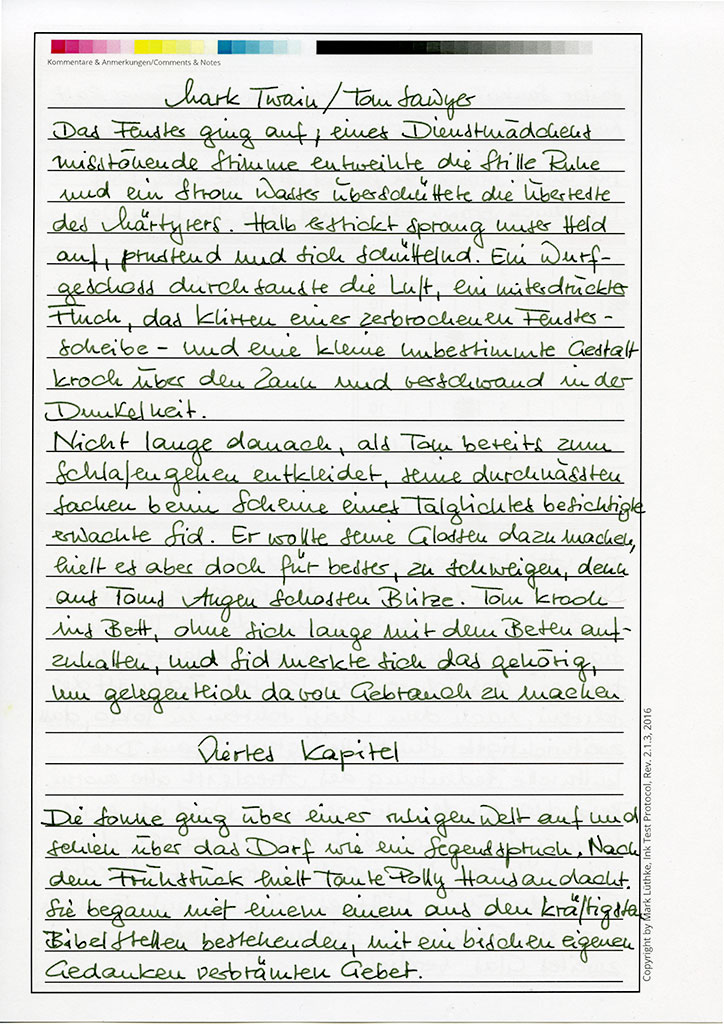 Kommentare & Anmerkungen/Comments & Notes
Mark Twain / Tom Sawyer
Das Fenster ging auf; eines Dienstmädchens
misstönende Stimme entweihte die Stille Ruhe
und ein Strom Wasser überschüttete die Überreste
des Märtyrers. Halb erstickt sprang unser Held
auf, prustend und sich schüttelnd. Ein Wurf-
geschoss durchsauste die Luft, ein unterdrückter
Fluch, das Klirren einer zerbrochenen Fenster-
scheibe - und eine kleine unbestimmte Gestalt
kroch über den Zaun und verschwand in der
Dunkelheit.
Nicht lange danach, als Tom bereits zum
Schlafengehen entkleidet, seine durchnässten
Sachen beim Scheine eines Talglichtes besichtigte
erwachte Sid. Er wollte seine Glossen dazu machen,
hielt es aber doch für besser, zu schweigen, denn
aus Toms Augen schossen Blitze. Tom kroch
ins Bett, ohne sich lange mit dem Beten auf-
zuhalten, und Sid merkte sich das gehörig,
um gelegentlich davon Gebrauch zu machen
Viertes Kapitel
Die Sonne ging über einer ruhigen Welt auf und
schien über das Dorf wie ein Segensspruch. Nach
dem Frühstück hielt Tante Polly Hausandacht.
Sie begann mit einem einem aus den kräftigsten
Bibelstellen bestehenden, mit ein bischen eigenen
Gedanken verbrämten Gebet.
Copyright by Mark Luthke, Ink Test Protocol, Rev. 2.1.3, 2016